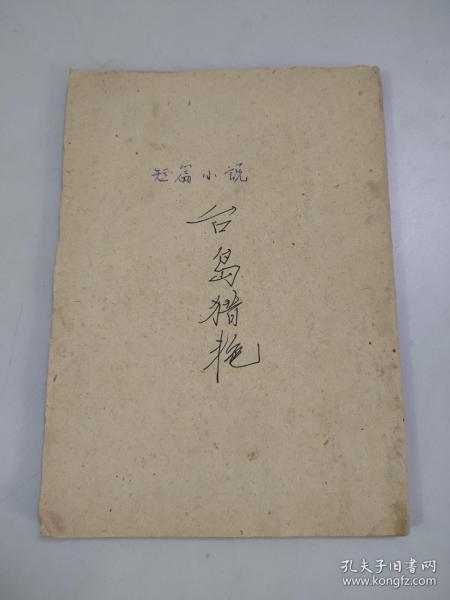 短篇小說
台岛猎艳
孔夫子旧书网
www.kongfz.com